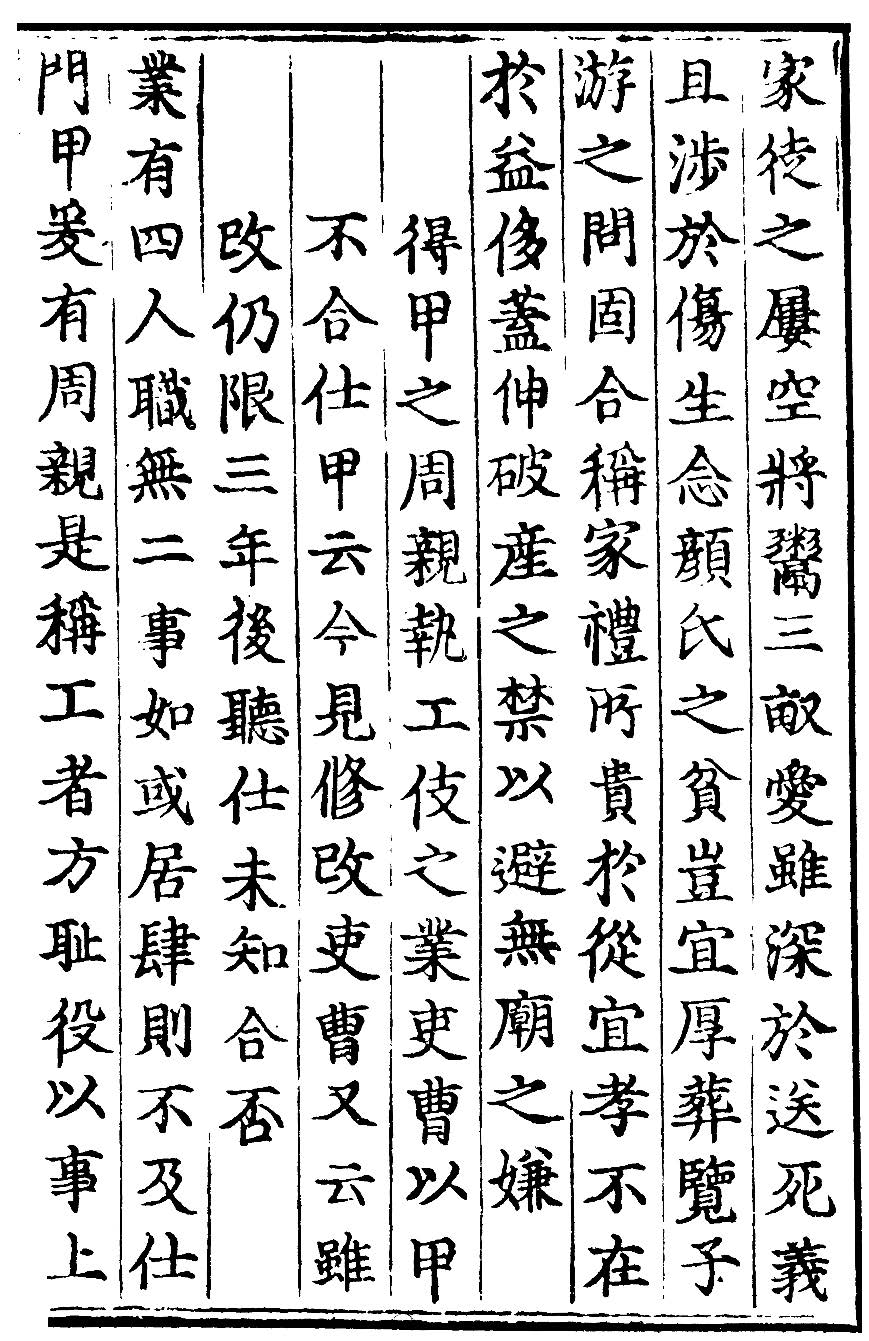 家徒之屢空將鬻三畝愛雖深於送死義
且涉於傷生念顔氏之貧豈宜厚葬覽子
游之問固合稱家禮所貴於從宜孝不在
於益侈蓋伸破産之禁以避無廟之嫌
得甲之周親執工伎之業吏曹以甲
不合仕甲云今見修改吏曹又云雖
改仍限三年後聽仕未知合否
業有四人職無二事如或居肆則不及仕
門甲爰有周親是稱工者方耻役以事上